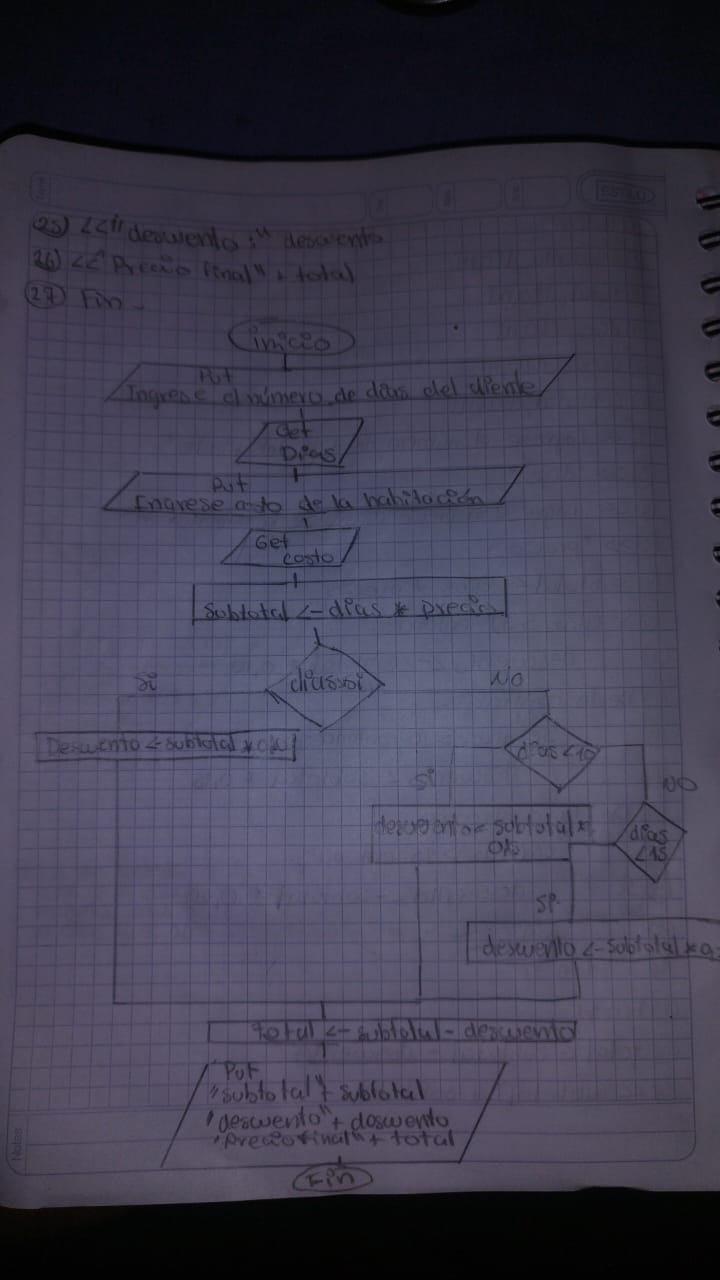 25) <<"descuento:" descuento
26) <<"Precio final" + total
27) Fin
inicio
Put
Ingrese el número de días del cliente
Get
Días
Put
Ingrese costo de la habitación
Get
costo
Subtotal <- días * precio
Si
No
Descuento <- subtotal *
días < 10
Si
NO
descuento <- subtotal *
días
< 15
descuento <- subtotal *
total <- subtotal - descuento
Put
"subtotal" + subtotal
"descuento" + descuento
"precio final" + total
Fin
Notas